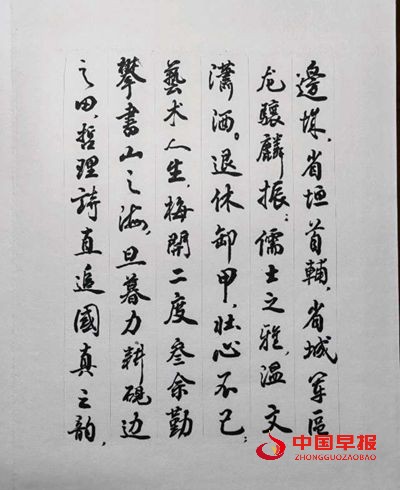 邊,省垣首輔,省城军區
龙驤麟振;儒士之雅,溫文
瀟洒。退休卸甲,壮心不已;
藝术人生,梅開二度叁余勤
攀書山之海,旦暮力耕硯边
之田,哲理詩直追國真之韵,
中国早报
ZHONGGUOZAOBAO